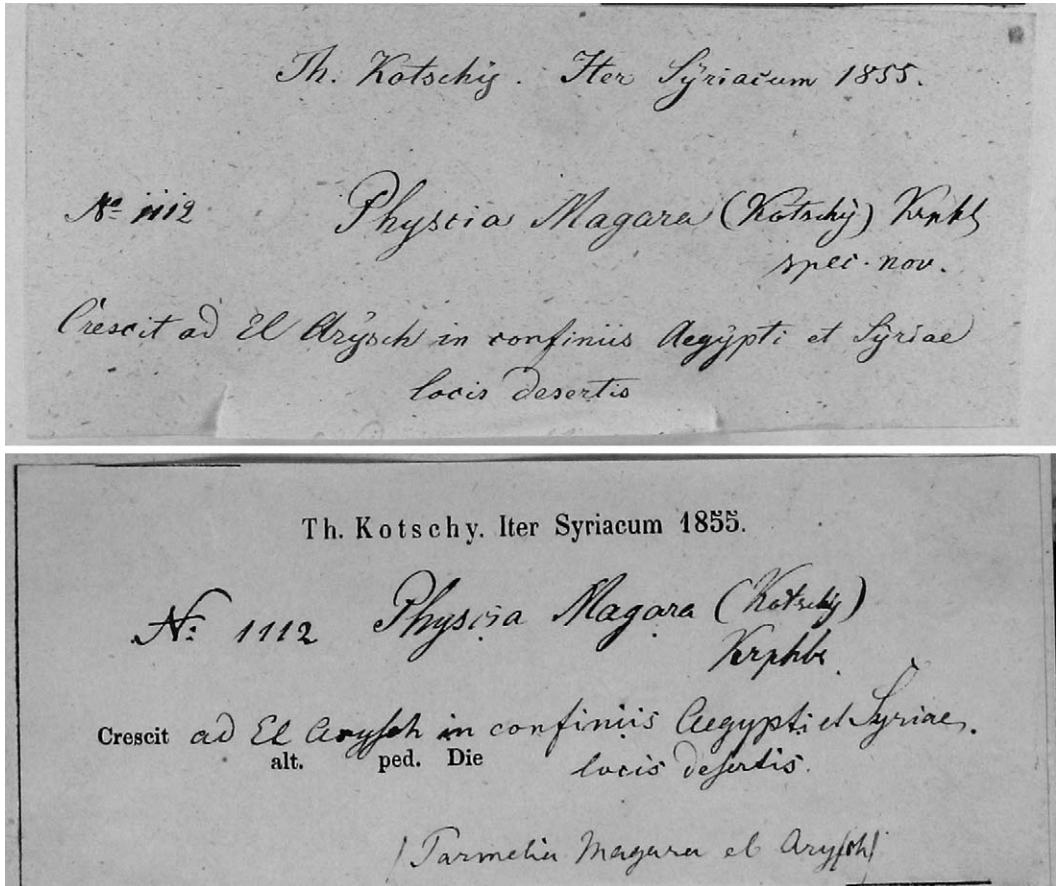 Th. Kotschÿ. Iter Sÿriacum 1855.
No 1112 Physcia Magara (Kotschÿ) Krphb
spec. nov.
Crescit ad El Arÿsch in confiniis Aegÿpti et Sÿriae
locis desertis
Th. Kotschy. Iter Syriacum 1855.
N: 1112 Physcia Magara (Kotschÿ)
Krphbr.
Crescit ad El Arysch in confiniis Aegypti et Syriae,
alt. ped. Die locis desertis.
(Parmelia Magara el Arysch)